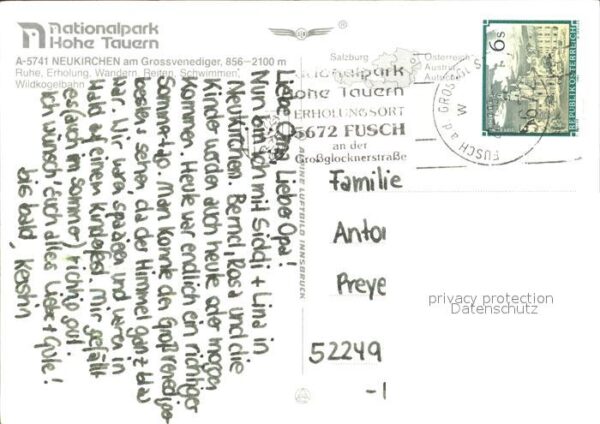 Nationalpark
Hohe Tauern
A-5741 NEUKIRCHEN am Grossvenediger, 856–2100 m
Ruhe, Erholung, Wandern, Reiten, Schwimmen,
Wildkogelbahn
Salzburg
Österreich
Austria
Nationalpark
Hohe Tauern
ERHOLUNGSORT
5672 FUSCH
an der
Großglocknerstraße
FUSCH a.d. GROSSGL
6s
REPUBLIK ÖSTERREICH
ALPINE LUFTBILD INNSBRUCK
Liebe Oma, Lieber Opa!
Nun bin ich mit Siddi + Lina in
Neukirchen. Bernd, Rosa und die
Kinder werden auch heute oder morgen
kommen. Heute war endlich ein richtiger
Sommertag. Man konnte den Großvenediger
bestens sehen, da der Himmel ganz blau
war. Wir waren spazieren und waren in
Wald auf einem Kinderfest. Mir gefällt
es (auch im Sommer) richtig gut.
Ich wünsch' Euch alles Liebe + Gute!
bis bald, Kerstin
Familie
Anto
Preye
52249
privacy protection
Datenschutz